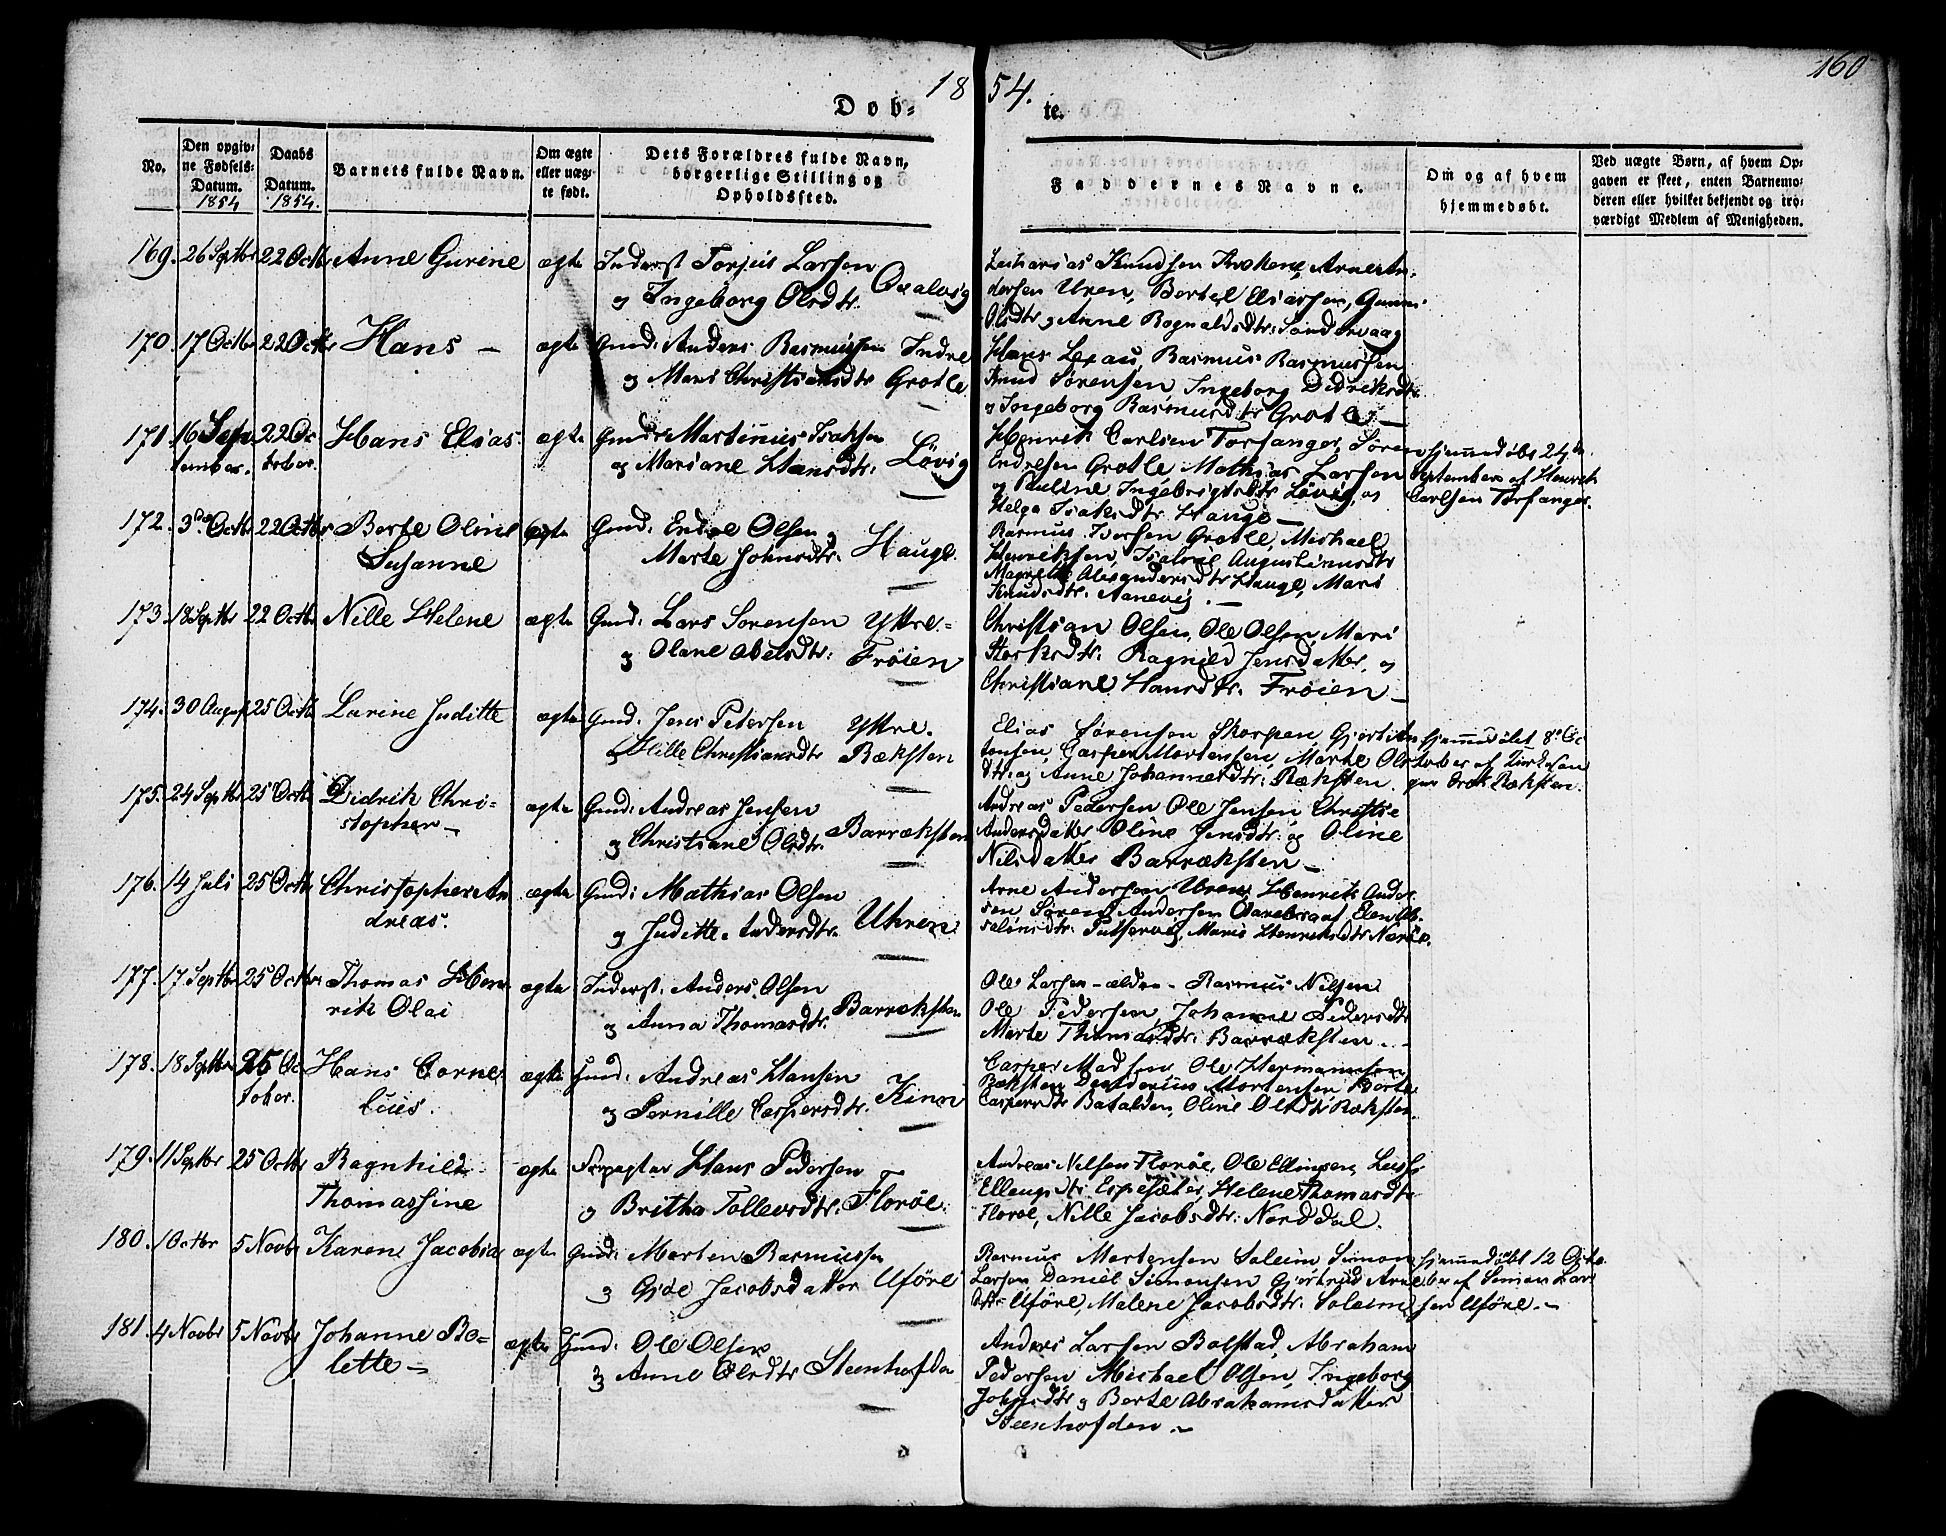 1854.
160
Døb-te.
No.
Den opgiv-
ne Fødsels-
Datum.
1854
Daabs
Datum.
1854.
Barnets fulde Navn.
Om ægte
eller uæg-
te født.
Dets Forældres fulde Navn,
borgerlige Stilling og
Opholdssted.
Faddernes Navne.
Om og af hvem
hjemmedøbt.
Ved uægte Børn, af hvem Op-
gaven er skeet, enten Barnemo-
deren eller hvilket bekjendt og tro-
værdigt Medlem af Menigheden.
169. 26 Septbr 22 Octb Anne Gurine ægte Inderst Torjus Larsen
og Ingeborg Olsdtr.
Knudsen Arne An-
dersen Uren, Bertel Eliassen,
Olsdtr og Anne Rognaldsdtr:
170. 17 Octbr 22 Octb Hans — ægte Gmd: Anders Rasmussen Indre
og Mari Christiansdtr Grotle
Hans Rasmus Rasmussen
Knud Sørensen, Ingeborg Didriksdtr
og Ingeborg Rasmusdtr Grotle. —
171 16 Sep-
tember. 22 Oc-
tober. Hans Elias ægte Gmd: Martinus Isaksen
og Mariane Hansdtr: Løvig
Henrik Carlsen Torfanger, Søren
Endresen Grotle Mathias Larsen
og Pauline Ingebrigtsdtr Løvig, og
Helga Isaksdtr Hauge —
hjemmedøbt 24de
September af Henrik
Carlsen Torfanger.
172. 3die Octbr 22 Octbr Berte Oline
Susanne ægte Gmd: Endre Olsen og
Marte Johnsdtr: Hauge.
Rasmus Iversen Grotle, Michael
Henriksen, Augustinusdtr
Alexandersdtr Hauge, Mari
Knudsdtr: Aanevig. —
173 18 Septbr 22 Octbr Nille Helene ægte Gmd: Lars Sørensen Yttre-
og Olane Abelsdtr: Frøien
Christian Olsen, Ole Olsen, Mari
Ragnild Jensdatter, og
Christiane Hansdtr. Frøien —
174. 30 August 25 Octb Larine Juditte ægte Gmd: Jens Petersen Yttre.
og Hille Christiansdtr Ræksten
Elias Sørensen Skorpen
Casper Mortensen, Marte Ols-
dtr: og Anne Johannesdtr: Ræksten.
hjemmedøbt 8de Oc-
tober af
Ræksten.
175. 24 Septbr 25 Octb Didrik Chri-
stopher — ægte Gmd: Andreas Jensen
og Christiane Olsdtr. Barræksten
Andreas Pedersen Ole Jensen Christie
Andersdatter Oline Jensdtr: og Oline
Nilsdatter Barræksten —
176. 14 Juli 25 Octbr Christopher An-
dreas. ægte Gmd: Mathias Olsen
og Juditte Andersdtr. Uhren
Arne Andersen Uren, Henrik Ander-
sen Søren Andersen Elen Ab-
salonsdtr: Maris Henriksdtr
177. 17 Septbr 25 Octbr Thomas Hen-
rik Olai ægte Inderst: Anders Olsen
og Anna Thomasdtr. Barræksten
Ole Larsen - ældre - Rasmus Nilsen
Ole Pedersen, Johanne Pedersdtr
Marte Thomasdtr: Barræksten.
178. 18 Septbr 25 Oc-
tober. Hans Corne-
lius. ægte Gmd: Andreas Hansen
og Pernille Caspersdtr. Kinn
Casper Madsen, Ole Hermansen
Ræksten Desiderius Mortensen Berte
Caspersdtr Batalden, Oline Olsdtr Ræksten.
179. 11 Septbr 25 Octbr Ragnhild
Thomassine ægte Forpagter Hans Pedersen
og Britha Tollevsdtr: Florøe.
Andreas Nilsen Florøe, Ole Ellingsen,
Espesæter, Helene Thomasdtr
Florøe, Nille Jacobsdtr: Norddal.
180. 1 Octbr 5 Novbr Karen Jacobia ægte Gmd: Morten Rasmussen
og Gjøe Jacobsdatter Uføre
Rasmus Mortensen Soleim Simon
Larsen, Daniel Simonsen Gjertrud Arne-
dtr Uføre, Malene Jacobsdtr: Soleim
hjemmedøbt 12 Octo-
ber af Simon Lar-
sen Uføre. —
181. 4 Novbr 5 Novbr Johanne Bo-
lette — ægte Gmd: Ole Olsen
og Anne Olsdtr Steenhofden
Anders Larsen Bolstad, Abraham
Pedersen Michael Olsen, Ingeborg
Johnsdtr og Berte Abrahamsdatter
Steenhofden. —